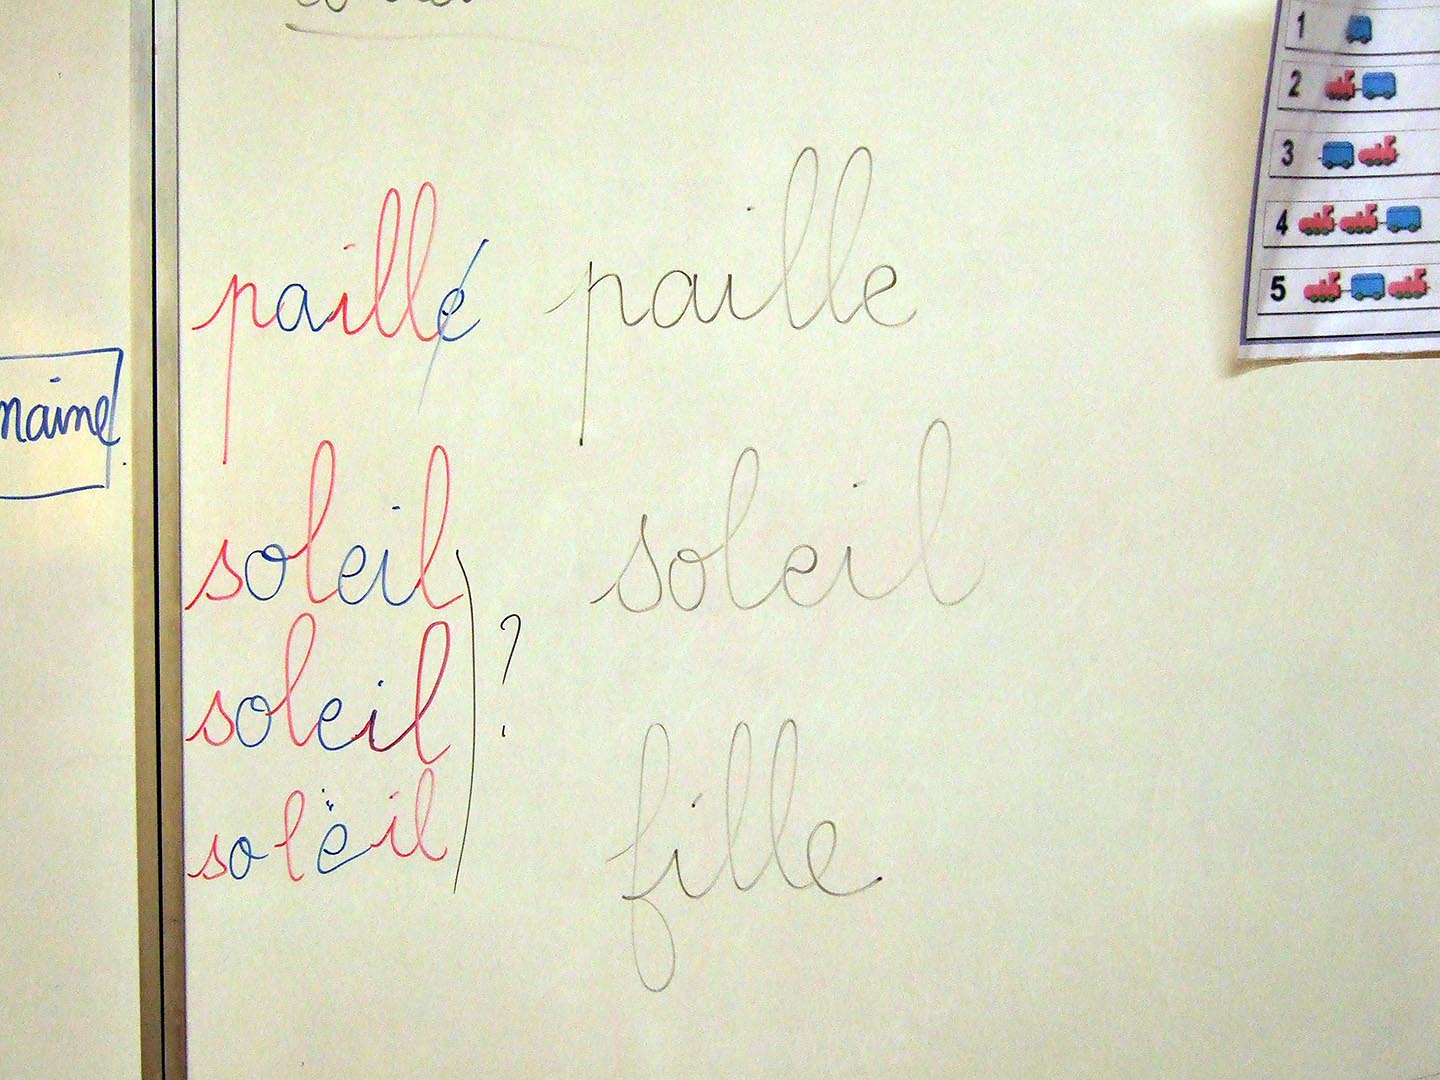 1
2
3
4
5
paille paille
naine
soleil soleil
soleil ?
solëil
fille